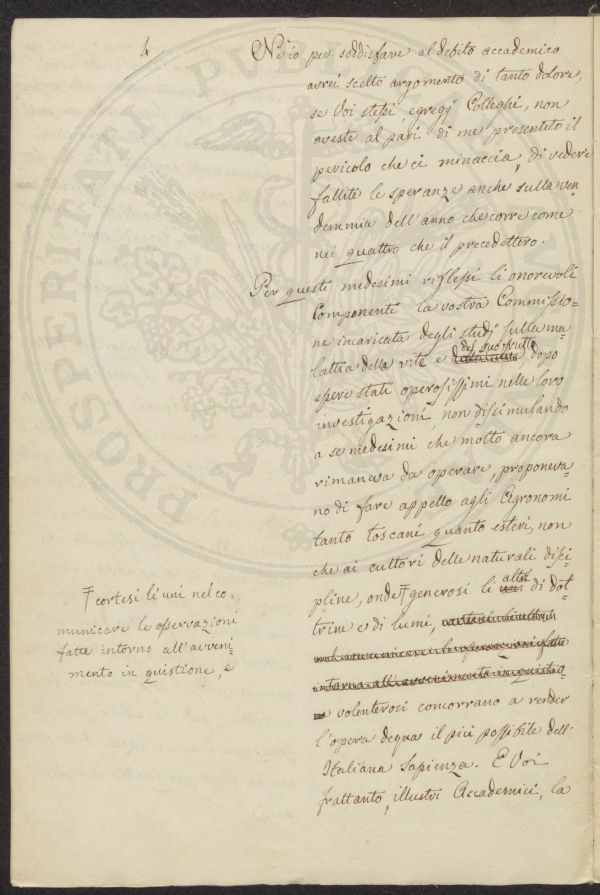 4
Nè io per soddisfare al debito accademico
avrei scelto argomento di tanto dolore,
se Voi stessi, egregj Colleghi, non
aveste al pari di me presentito il
pericolo che ci minaccia, di vedere
fallite le speranze anche sulla ven
demmia dell'anno che corre come
nei quattro che il precedettero.
Per questi medesimi riflessi li onorevoli
Componenti la vostra Commissio=
ne incaricata degli studj sulla ma=
lattia della vite e del suo frutto dopo
essere stati operosissimi nelle loro
investigazioni, non dissimulando
a se medesimi che molto ancora
rimaneva da operare, proponeva=
no di fare appello agli Agronomi
tanto toscani quanto esteri, non
che ai cultori delle naturali disci=
pline, onde Ŧ generosi li altri di dot=
trine e di lumi,
volenterosi concorrano a render
l'opera degna il più possibile dell'
Italiana Sapienza. E Voi
frattanto, illustri Accademici, la
Ŧ cortesi li uni nel co=
municare le osservazioni
fatte intorno all'avveni=
mento in quistione, e
PROSPERITATI PUBLICAE